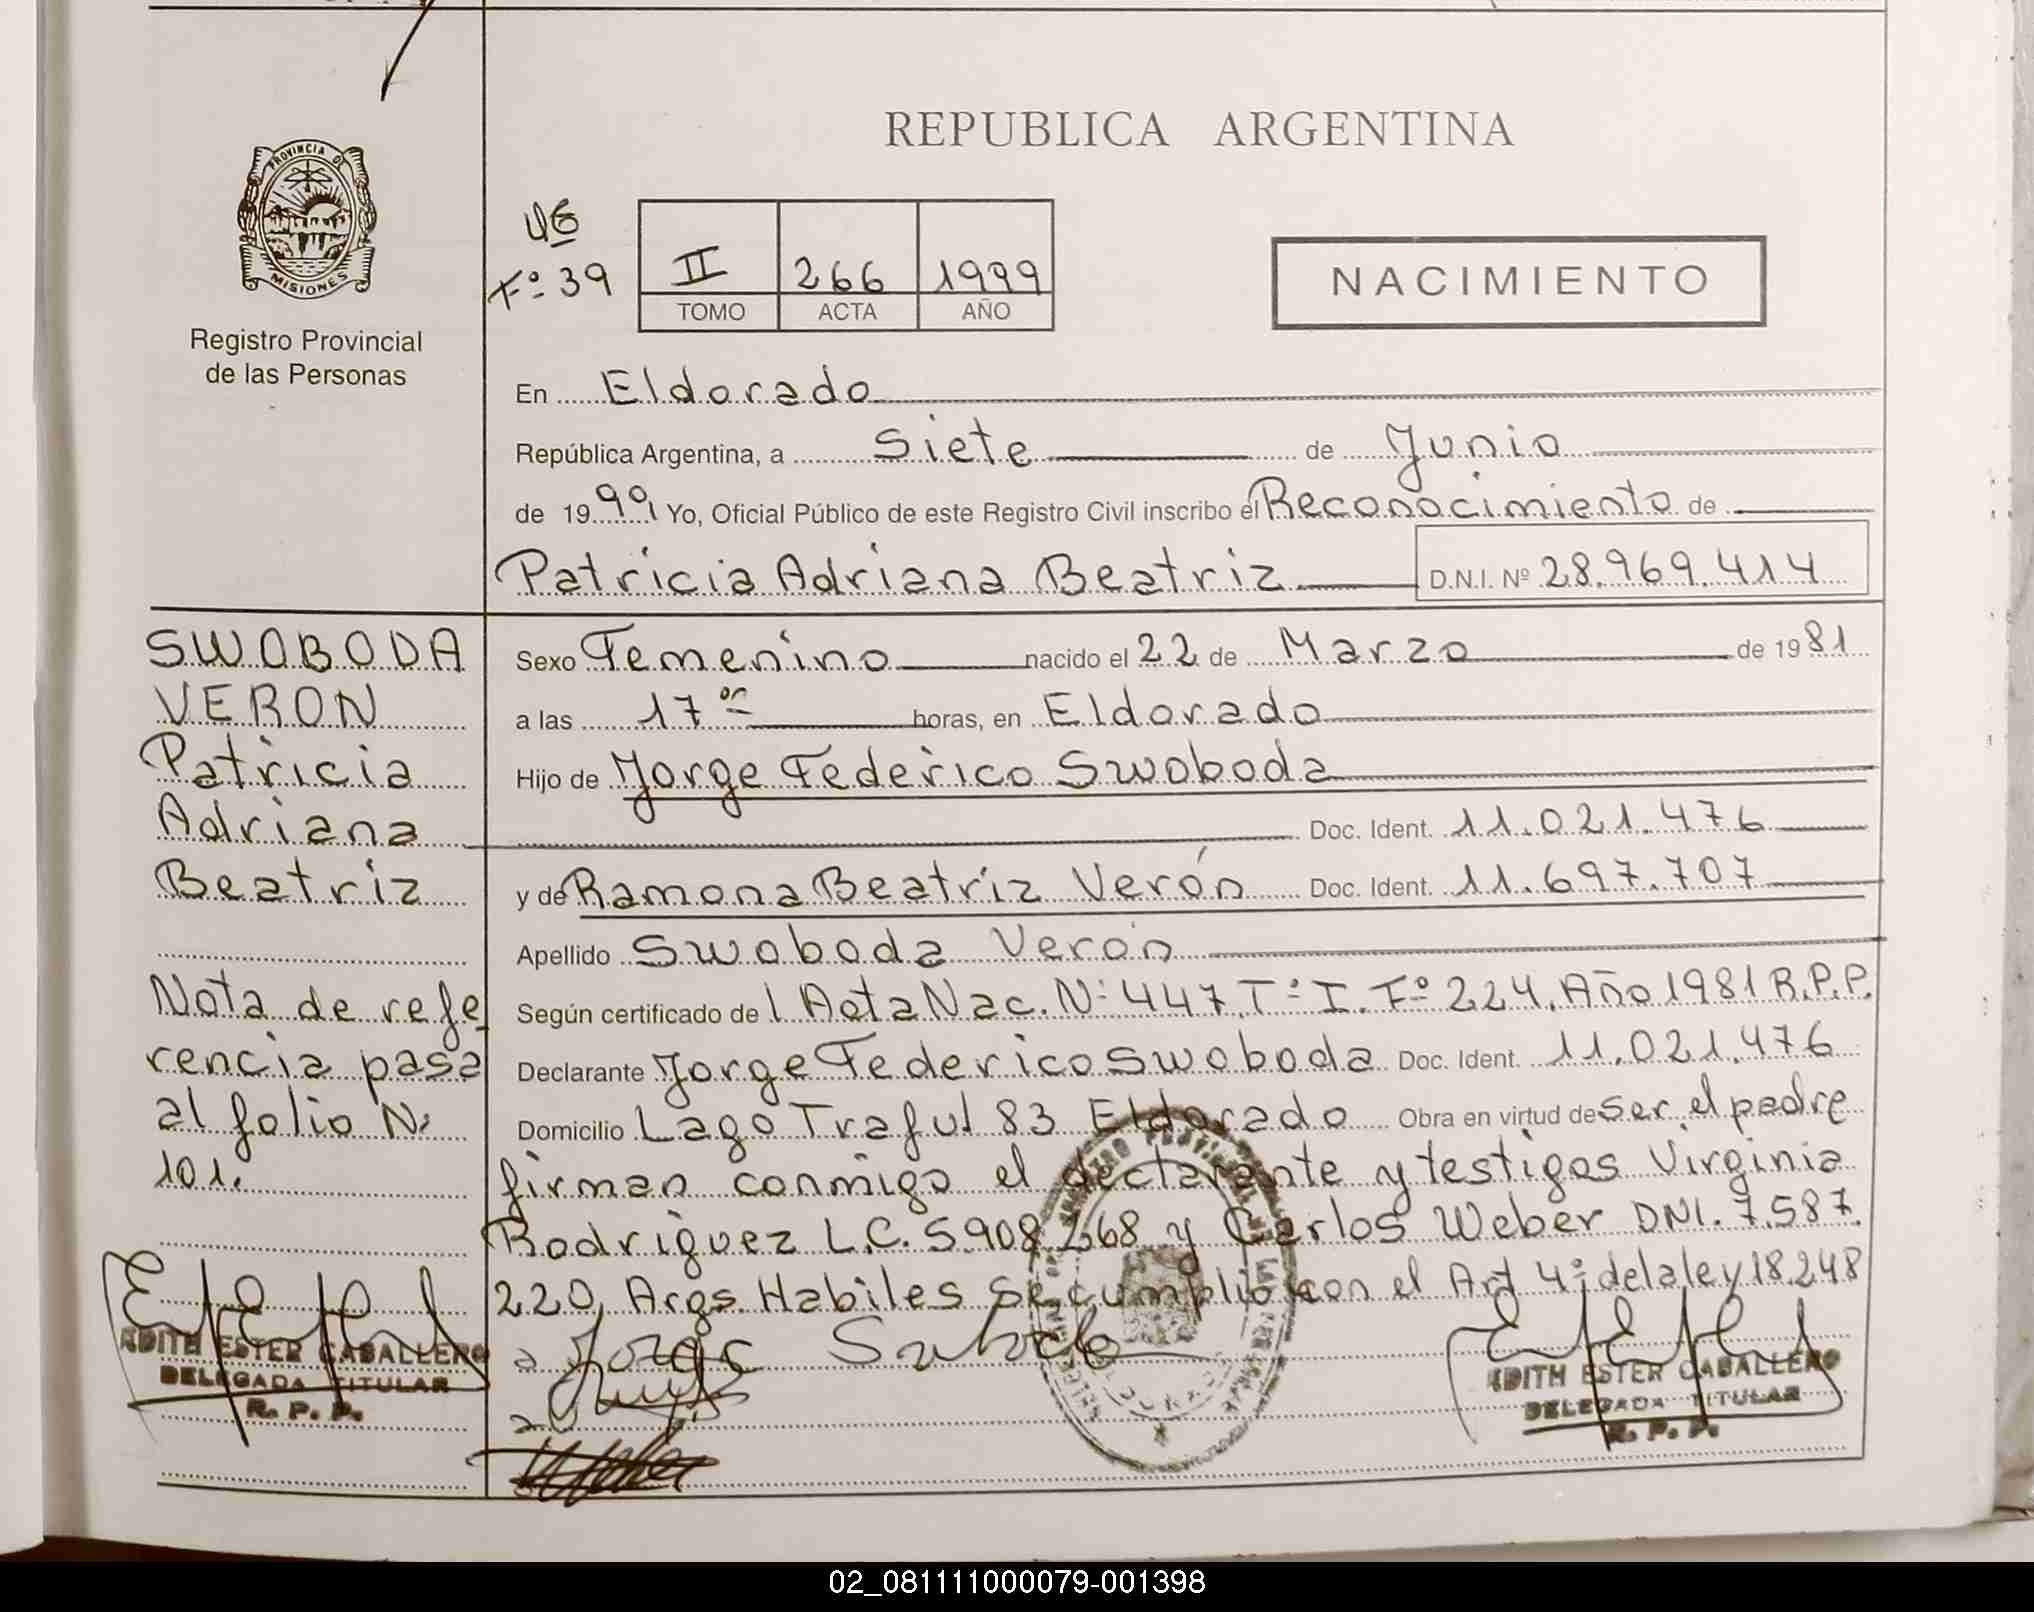 REPUBLICA ARGENTINA
PROVINCIA DE
MISIONES
Registro Provincial
de las Personas
Fº 39
II 266 1999
TOMO ACTA AÑO
NACIMIENTO
En Eldorado
República Argentina, a Siete de Junio
de 1999 Yo, Oficial Público de este Registro Civil inscribo el Reconocimiento de
Patricia Adriana Beatriz D.N.I. Nº 28.969.414
SWOBODA
VERON
Patricia
Adriana
Beatriz
Nota de refe
rencia pasa
al folio Nº
101.
EDITH ESTER CABALLERO
DELEGADA TITULAR
R. P. P.
Sexo Femenino nacido el 22 de Marzo de 1981
a las 17 horas, en Eldorado
Hijo de Jorge Federico Swoboda
Doc. Ident. 11.021.476
y de Ramona Beatriz Verón Doc. Ident. 11.697.707
Apellido Swoboda Verón
Según certificado del Acta Nac. Nº 447. Tº I. Fº 224. Año 1981 R.P.P.
Declarante Jorge Federico Swoboda Doc. Ident. 11.021.476
Domicilio Lago Traful 83 Eldorado Obra en virtud de ser el padre
firman conmigo el declarante y testigos Virginia
Rodriguez L.C. 5.908.268 y Carlos Weber DNI. 7.587.
220, Args. Habiles se cumplio con el Art 4º de la ley 18.248
EDITH ESTER CABALLERO
DELEGADA TITULAR
R. P. P.
02_081111000079-001398